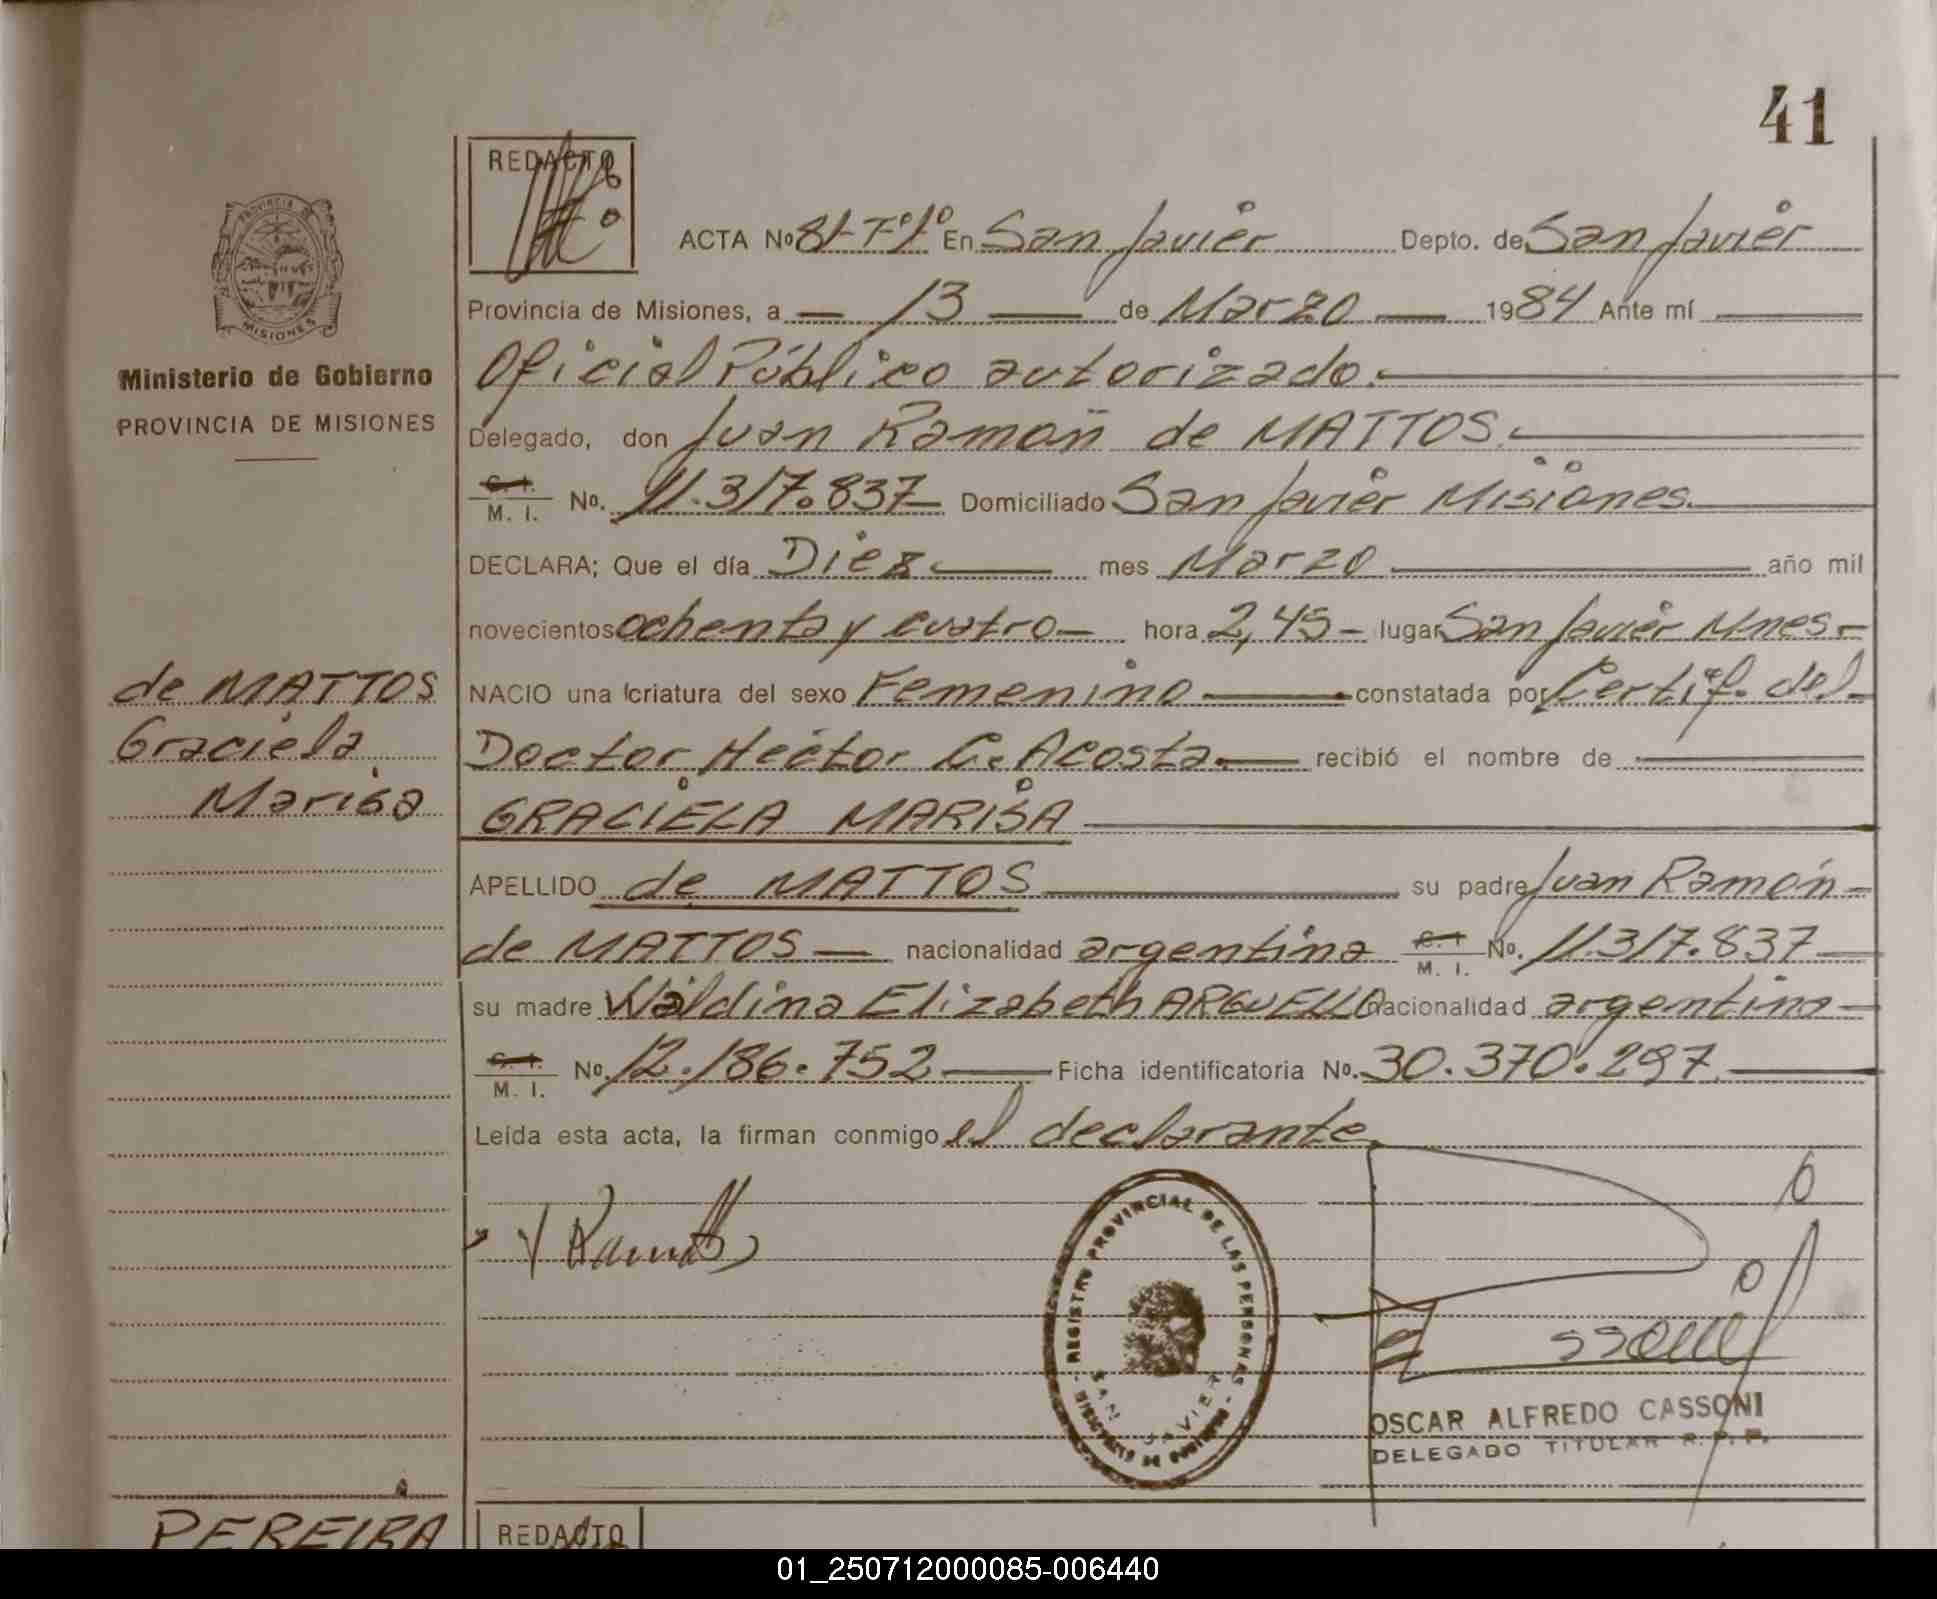 41
REDACTO
ACTA Nº 81-Tº1º En San Javier Depto. de San Javier
Provincia de Misiones, a — 13 — de Marzo — 1984 Ante mí
Oficial Público autorizado.
Delegado, don Juan Ramón de MATTOS.
C. I. M. I. No. 11.317.837 Domiciliado San Javier Misiones.
DECLARA; Que el día Diez mes Marzo año mil
novecientos ochenta y cuatro hora 2,45 lugar San Javier Mnes
NACIO una criatura del sexo Femenino constatada por Certif. del
Doctor Héctor C. Acosta. recibió el nombre de
GRACIELA MARISA
APELLIDO de MATTOS su padre Juan Ramón
de MATTOS nacionalidad argentina C. I. M. I. No. 11.317.837
su madre Waldina Elizabeth ARGUELLO nacionalidad argentina
C. I. M. I. No. 12.186.752 Ficha identificatoria No. 30.370.297
Leída esta acta, la firman conmigo el declarante.
PROVINCIA DE MISIONES
Ministerio de Gobierno
PROVINCIA DE MISIONES
de MATTOS
Graciela
Marisa
REGISTRO PROVINCIAL DE LAS PERSONAS
SAN JAVIER
OSCAR ALFREDO CASSONI
DELEGADO TITULAR R. P. P.
PEREIRA
REDACTO
01_250712000085-006440